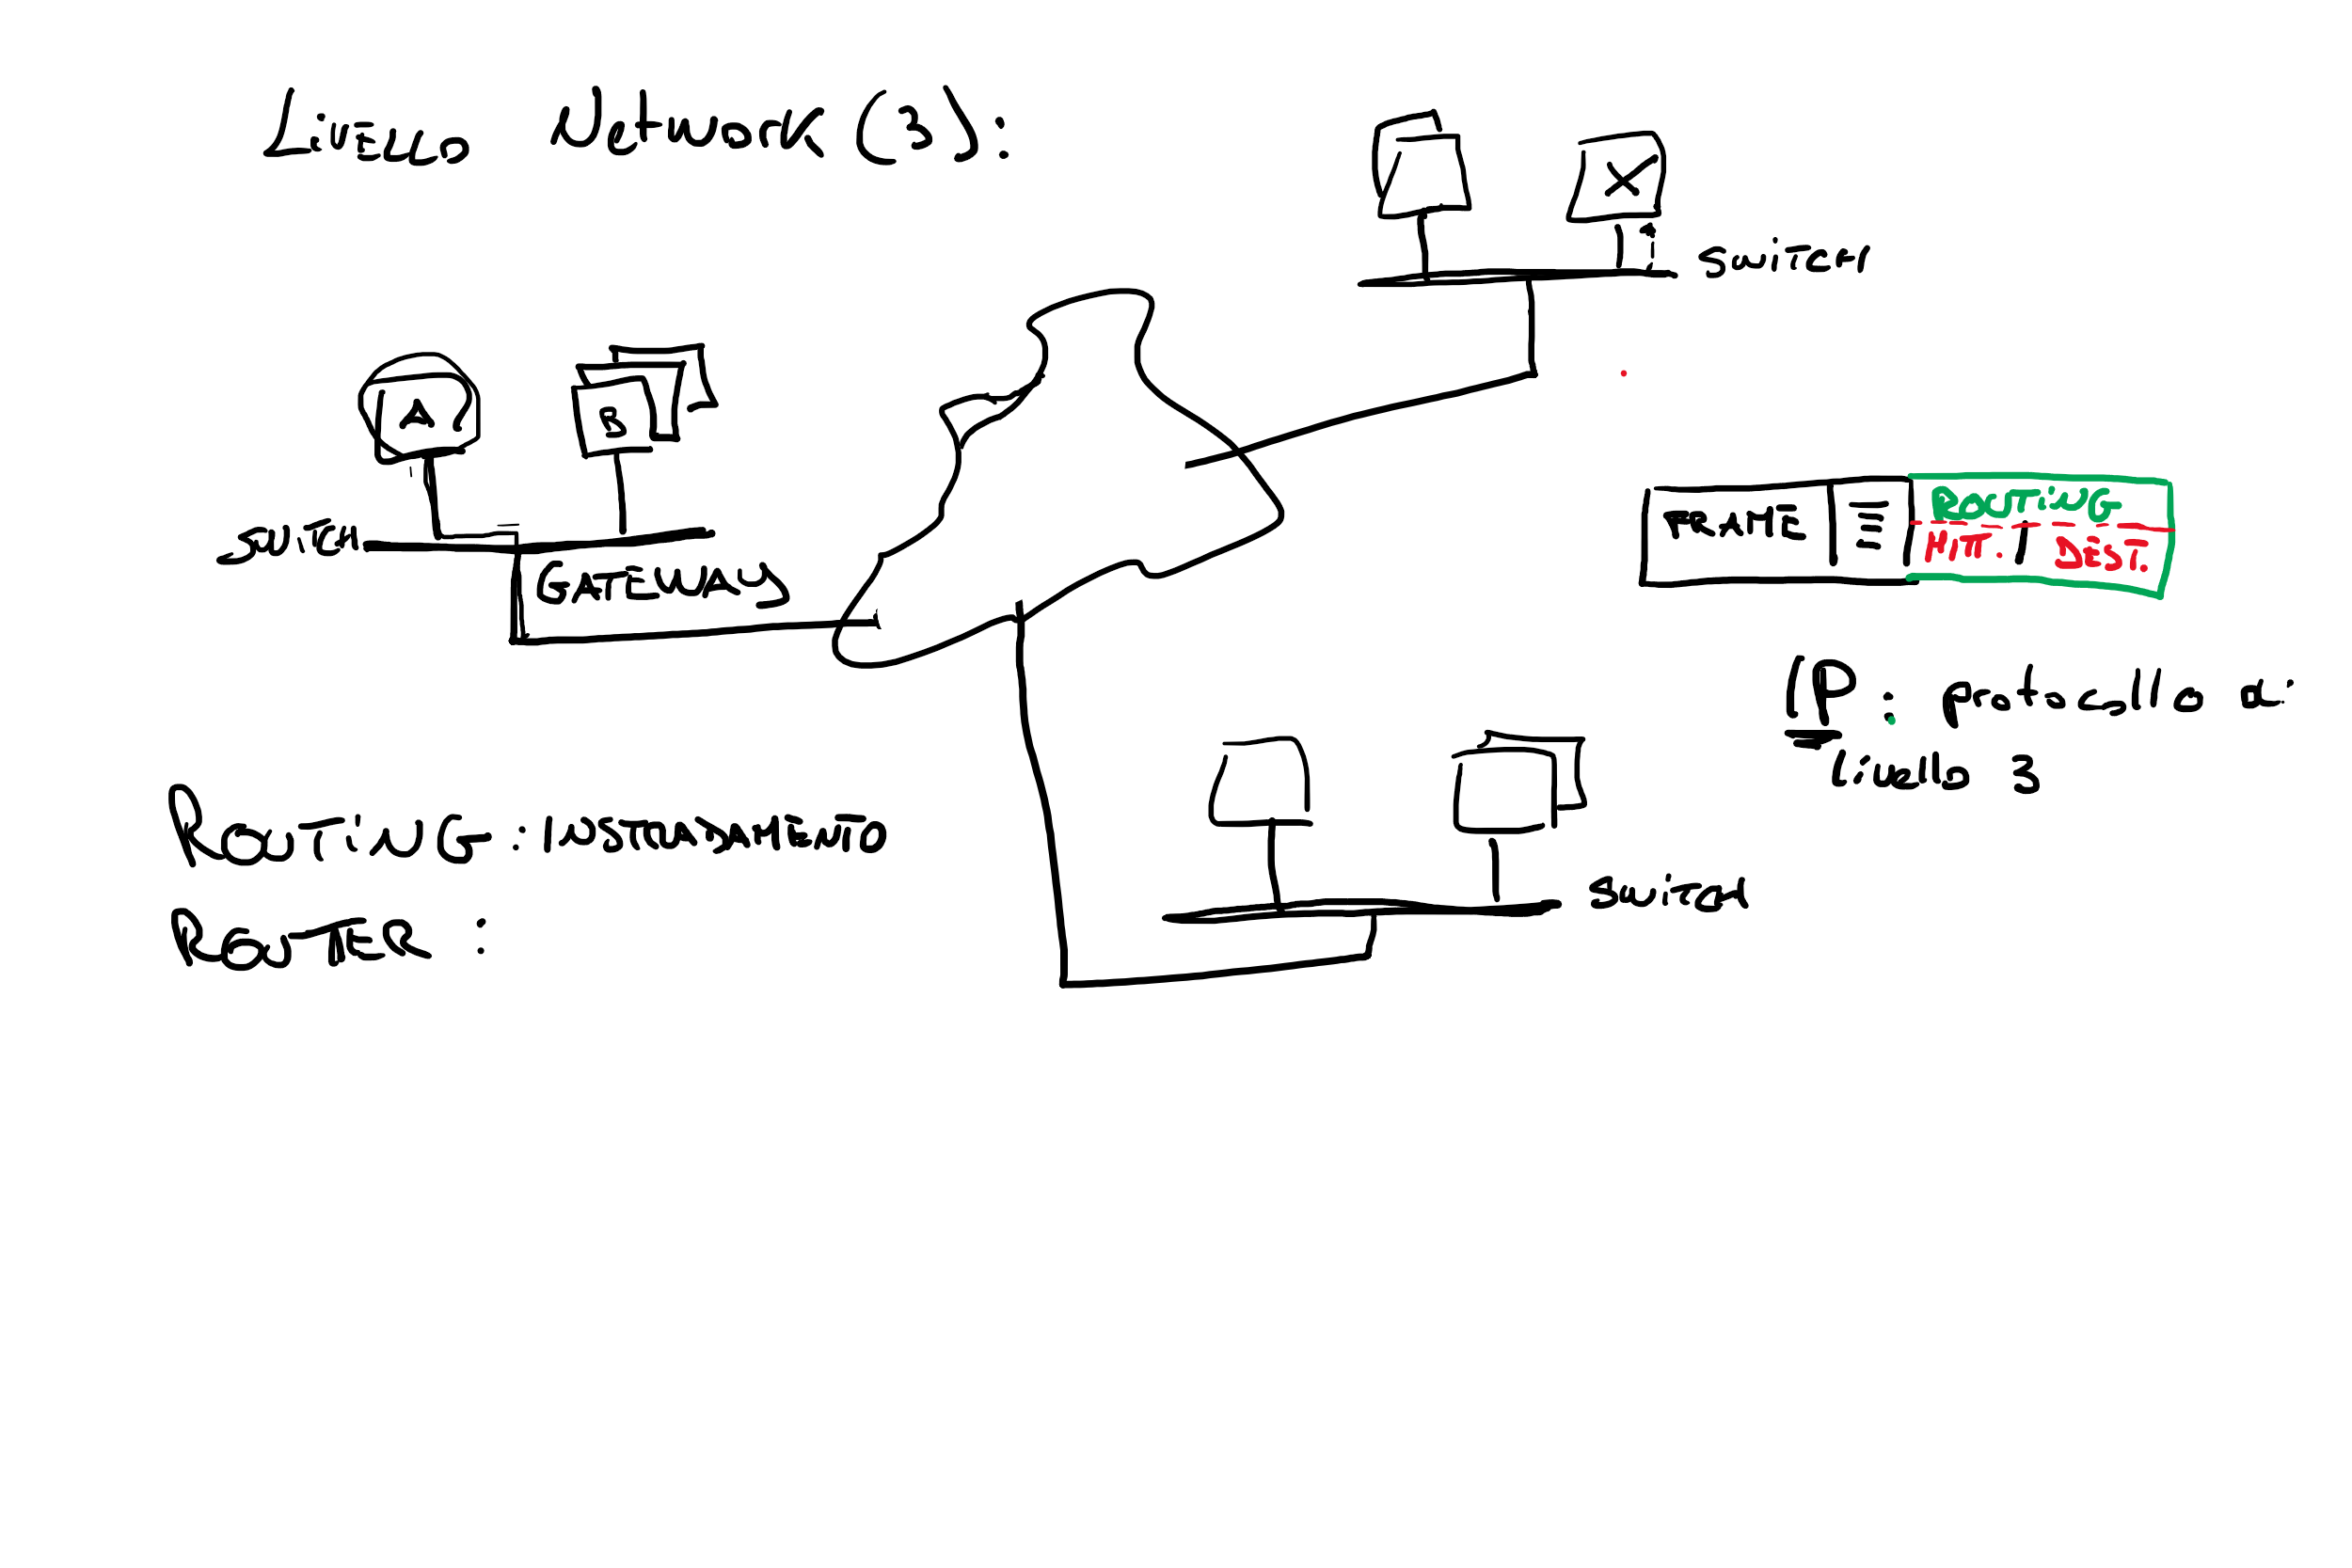 Livello Network (3):
X
SWITCH
A
B
SWITCH
GATEWAY
FRAME
ROUTING
MITT. DEST.
IP: protocollo di
livello 3
ROUTING: INSTRADAMENTO
ROUTER:
SWITCH